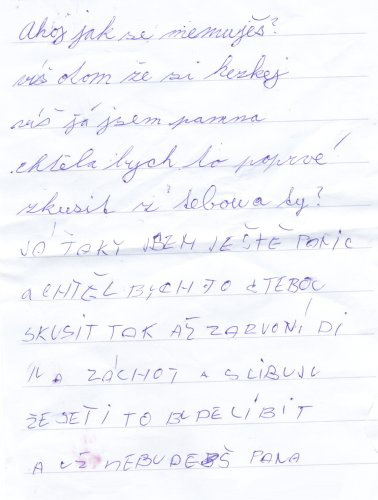 Ahoj jak se menuješ?
víš otom že si hezkej
víš já jsem panna
chtěla bych to poprvé
zkusit s tebou a ty?
JÁ TAKY JSEM JEŠTĚ PANIC
a CHTĚL BYCH TO STEBOU
SKUSIT TAK AŽ ZAZVONÍ DI
NA ZÁCHOT A SLIBUJU
ŽE SETI TO BUDE LÍBIT
A UŽ NEBUDEŠ PANA